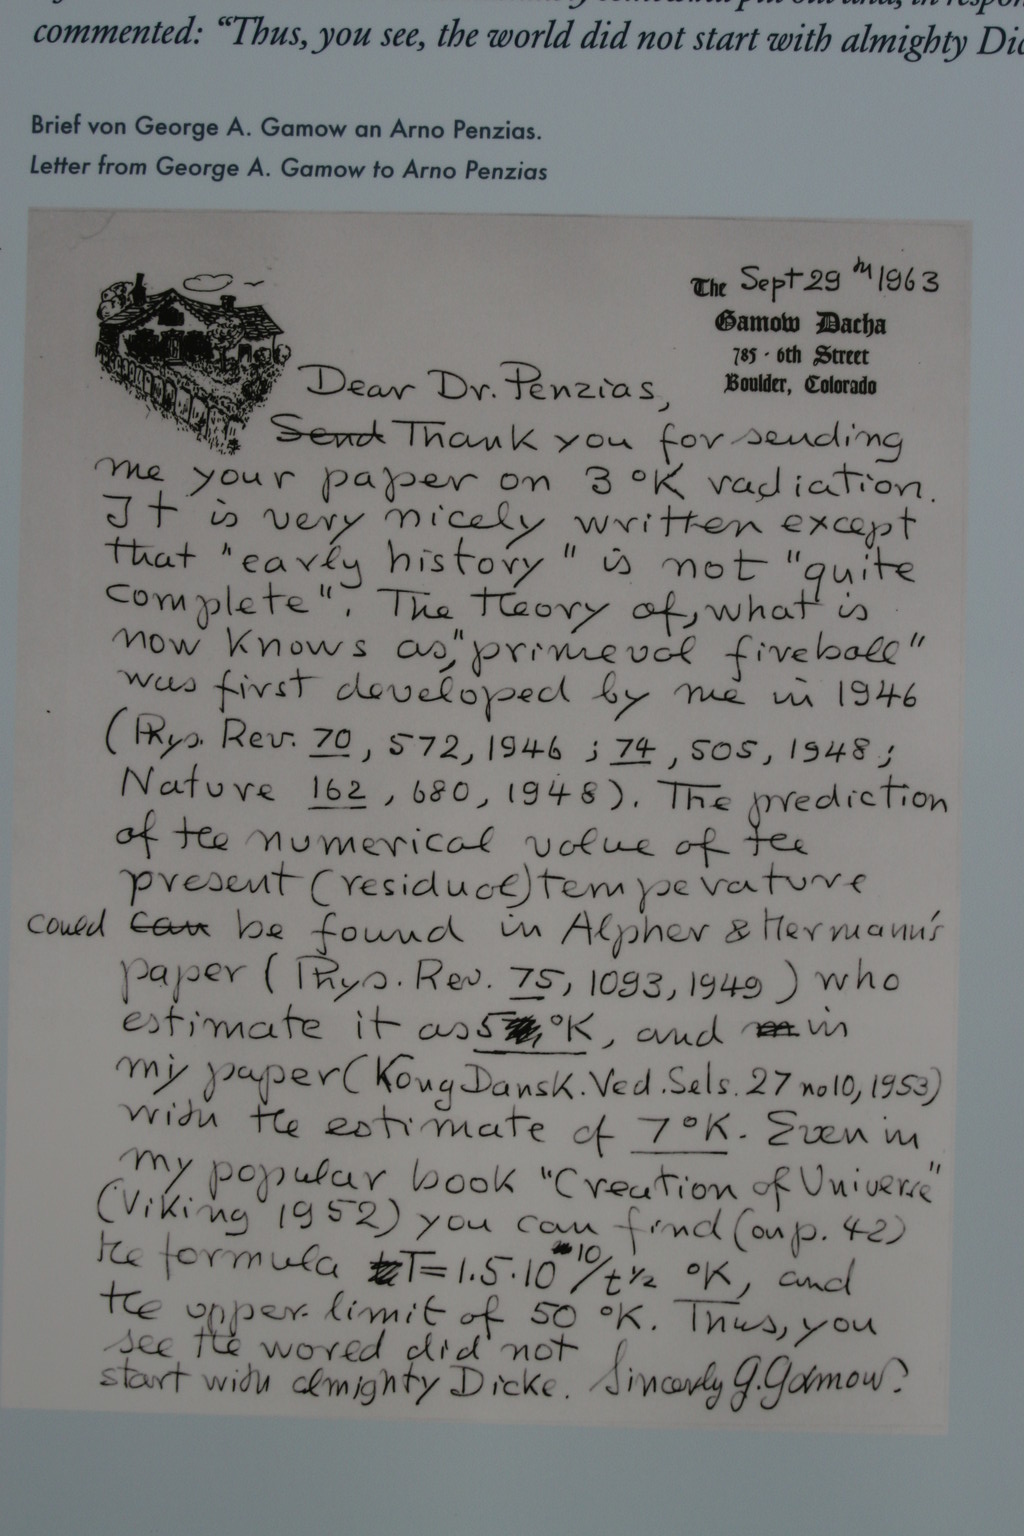 commented: “Thus, you see, the world did not start with almighty Dic
Brief von George A. Gamow an Arno Penzias.
Letter from George A. Gamow to Arno Penzias
The Sept 29th 1963
Gamow Dacha
785 · 6th Street
Boulder, Colorado
Dear Dr. Penzias,
Send Thank you for sending
me your paper on 3 °K radiation.
It is very nicely written except
that "early history" is not "quite
complete". The theory of, what is
now knows as, "primeval fireball"
was first developed by me in 1946
(Phys. Rev. 70, 572, 1946 ; 74, 505, 1948;
Nature 162, 680, 1948). The prediction
of the numerical value of the
present (residual) temperature
could can be found in Alpher & Hermann's
paper (Phys. Rev. 75, 1093, 1949) who
estimate it as 5 °K, and in
my paper (Kong Dansk. Ved. Sels. 27 no 10, 1953)
with the estimate of 7 °K. Even in
my popular book "Creation of Universe"
(Viking 1952) you can find (on p. 42)
the formula T = 1.5·10^10/t^1/2 °K, and
the upper limit of 50 °K. Thus, you
see the world did not
start with almighty Dicke. Sincerely G. Gamow